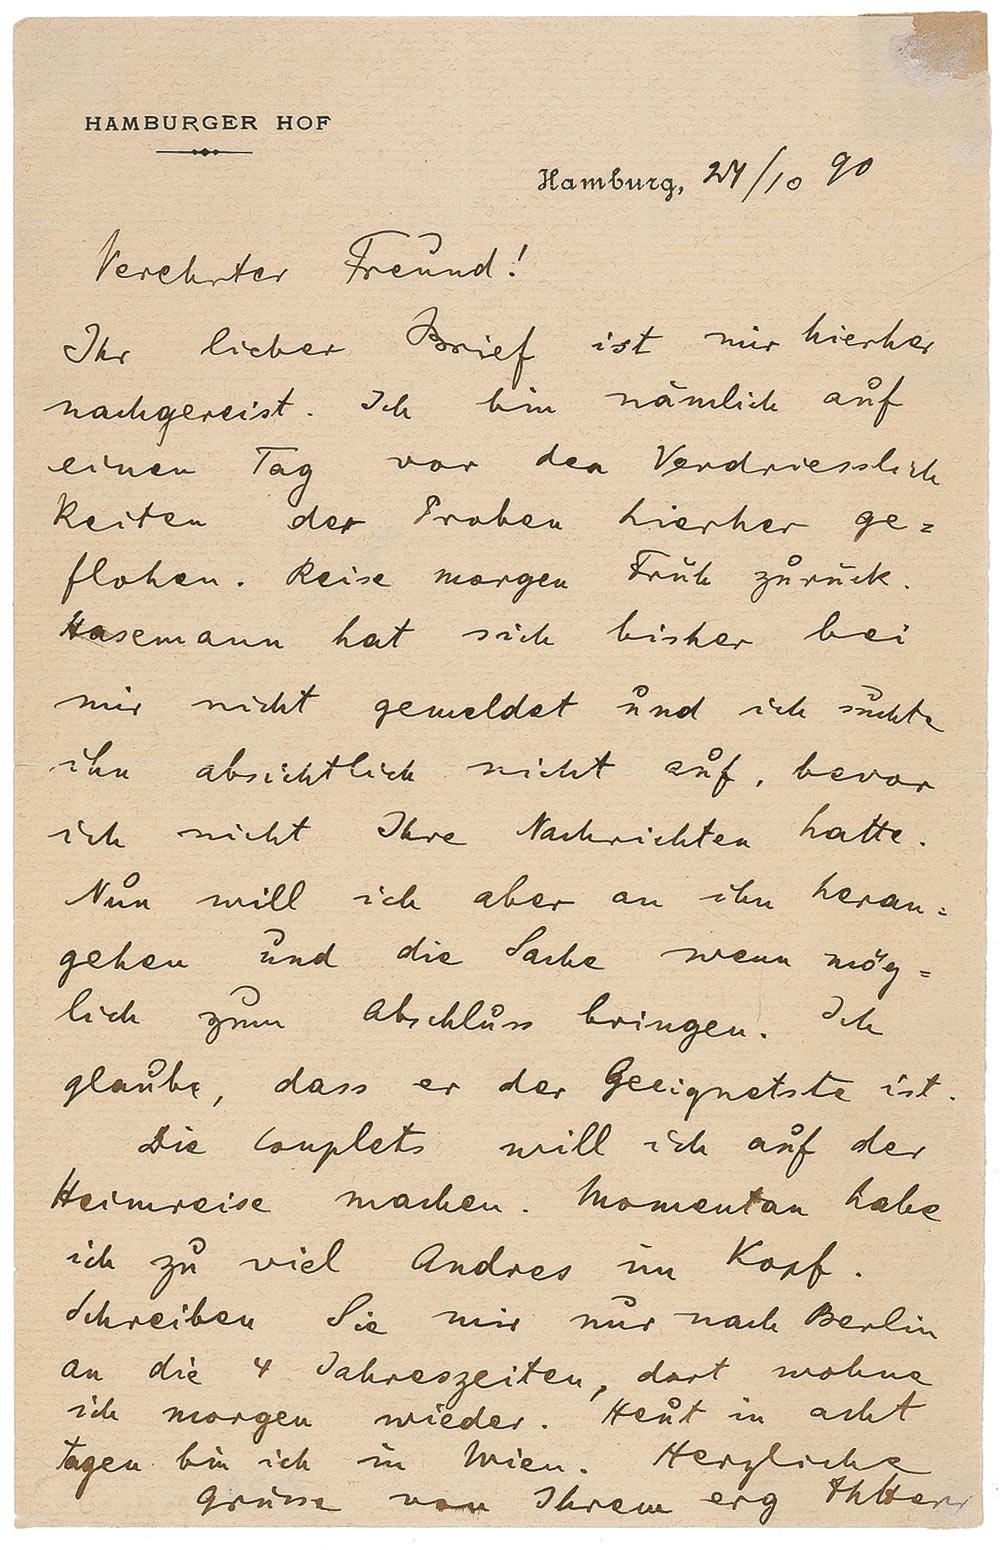 HAMBURGER HOF
Hamburg, 24/10 90
Verehrter Freund!
Ihr lieber Brief ist mir hierher
nachgereist. Ich bin nämlich auf
einen Tag vor den Verdriesslich
keiten der Proben hierher ge=
flohen. Reise morgen Früh zurück.
Hasemann hat sich bisher bei
mir nicht gemeldet und ich suchte
ihn absichtlich nicht auf, bevor
ich nicht Ihre Nachrichten hatte.
Nun will ich aber an ihn heran=
gehen und die Sache wenn mög=
lich zum Abschluss bringen. Ich
glaube, dass er der Geeignetste ist.
Die Couplets will ich auf der
Heimreise machen. Momentan habe
ich zu viel Andres im Kopf.
Schreiben Sie mir nur nach Berlin
an die 4 Jahreszeiten, dort wohne
ich morgen wieder. Heut in acht
tagen bin ich in Wien. Herzliche
Grüsse von Ihrem erg ThHerz